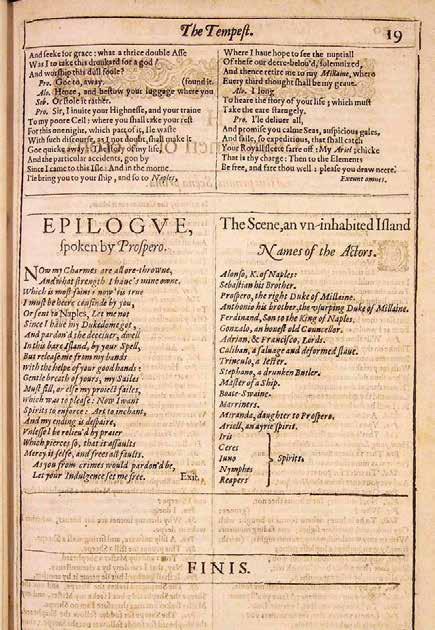 The Tempest.
19
And seeke for grace: what a thrice double Asse
Was I to take this drunkard for a god?
And worship this dull foole?
Pro. Goe to, away. (found it.
Alo. Hence, and bestow your luggage where you
Seb. Or stole it rather.
Pro. Sir, I inuite your Highnesse, and your traine
To my poore Cell: where you shall take your rest
For this one night, which part of it, Ile waste
With such discourse, as I not doubt, shall make it
Goe quicke away: The story of my life,
And the particular accidents, gon by
Since I came to this Isle: And in the morne
I'le bring you to your ship, and so to Naples,
Where I haue hope to see the nuptiall
Of these our deere-belou'd, solemnized,
And thence retire me to my Millaine, where
Euery third thought shall be my graue.
Alo. I long
To heare the story of your life; which must
Take the eare starngely.
Pro. I'le deliuer all,
And promise you calme Seas, auspicious gales,
And saile, so expeditious, that shall catch
Your Royall fleete farre off: My Ariel; chicke
That is thy charge: Then to the Elements
Be free, and fare thou well: please you draw neere.
Exeunt omnes.
EPILOGVE,
spoken by Prospero.
Now my Charmes are all ore-throwne,
And what strength I haue's mine owne.
Which is most faint: now 'tis true
I must be heere confinde by you,
Or sent to Naples, Let me not
Since I haue my Dukedome got,
And pardon'd the deceiuer, dwell
In this bare Island, by your Spell,
But release me from my bands
With the helpe of your good hands:
Gentle breath of yours, my Sailes
Must fill, or else my proiect failes,
Which was to please: Now I want
Spirits to enforce: Art to inchant,
And my ending is despaire,
Vnlesse I be relieu'd by praier
Which pierces so, that it assaults
Mercy it selfe, and frees all faults.
As you from crimes would pardon'd be,
Let your Indulgence set me free. Exit.
The Scene, an vn-inhabited Island
Names of the Actors.
Alonso, K. of Naples:
Sebastian his Brother.
Prospero, the right Duke of Millaine.
Anthonio his brother, the vsurping Duke of Millaine.
Ferdinand, Son to the King of Naples.
Gonzalo, an honest old Councellor.
Adrian, & Francisco, Lords.
Caliban, a saluage and deformed slaue.
Trinculo, a Iester.
Stephano, a drunken Butler.
Master of a Ship.
Boate-Swaine.
Marriners.
Miranda, daughter to Prospero.
Ariell, an ayrie spirit.
Iris
Ceres
Iuno
Nymphes
Reapers
Spirits.
FINIS.